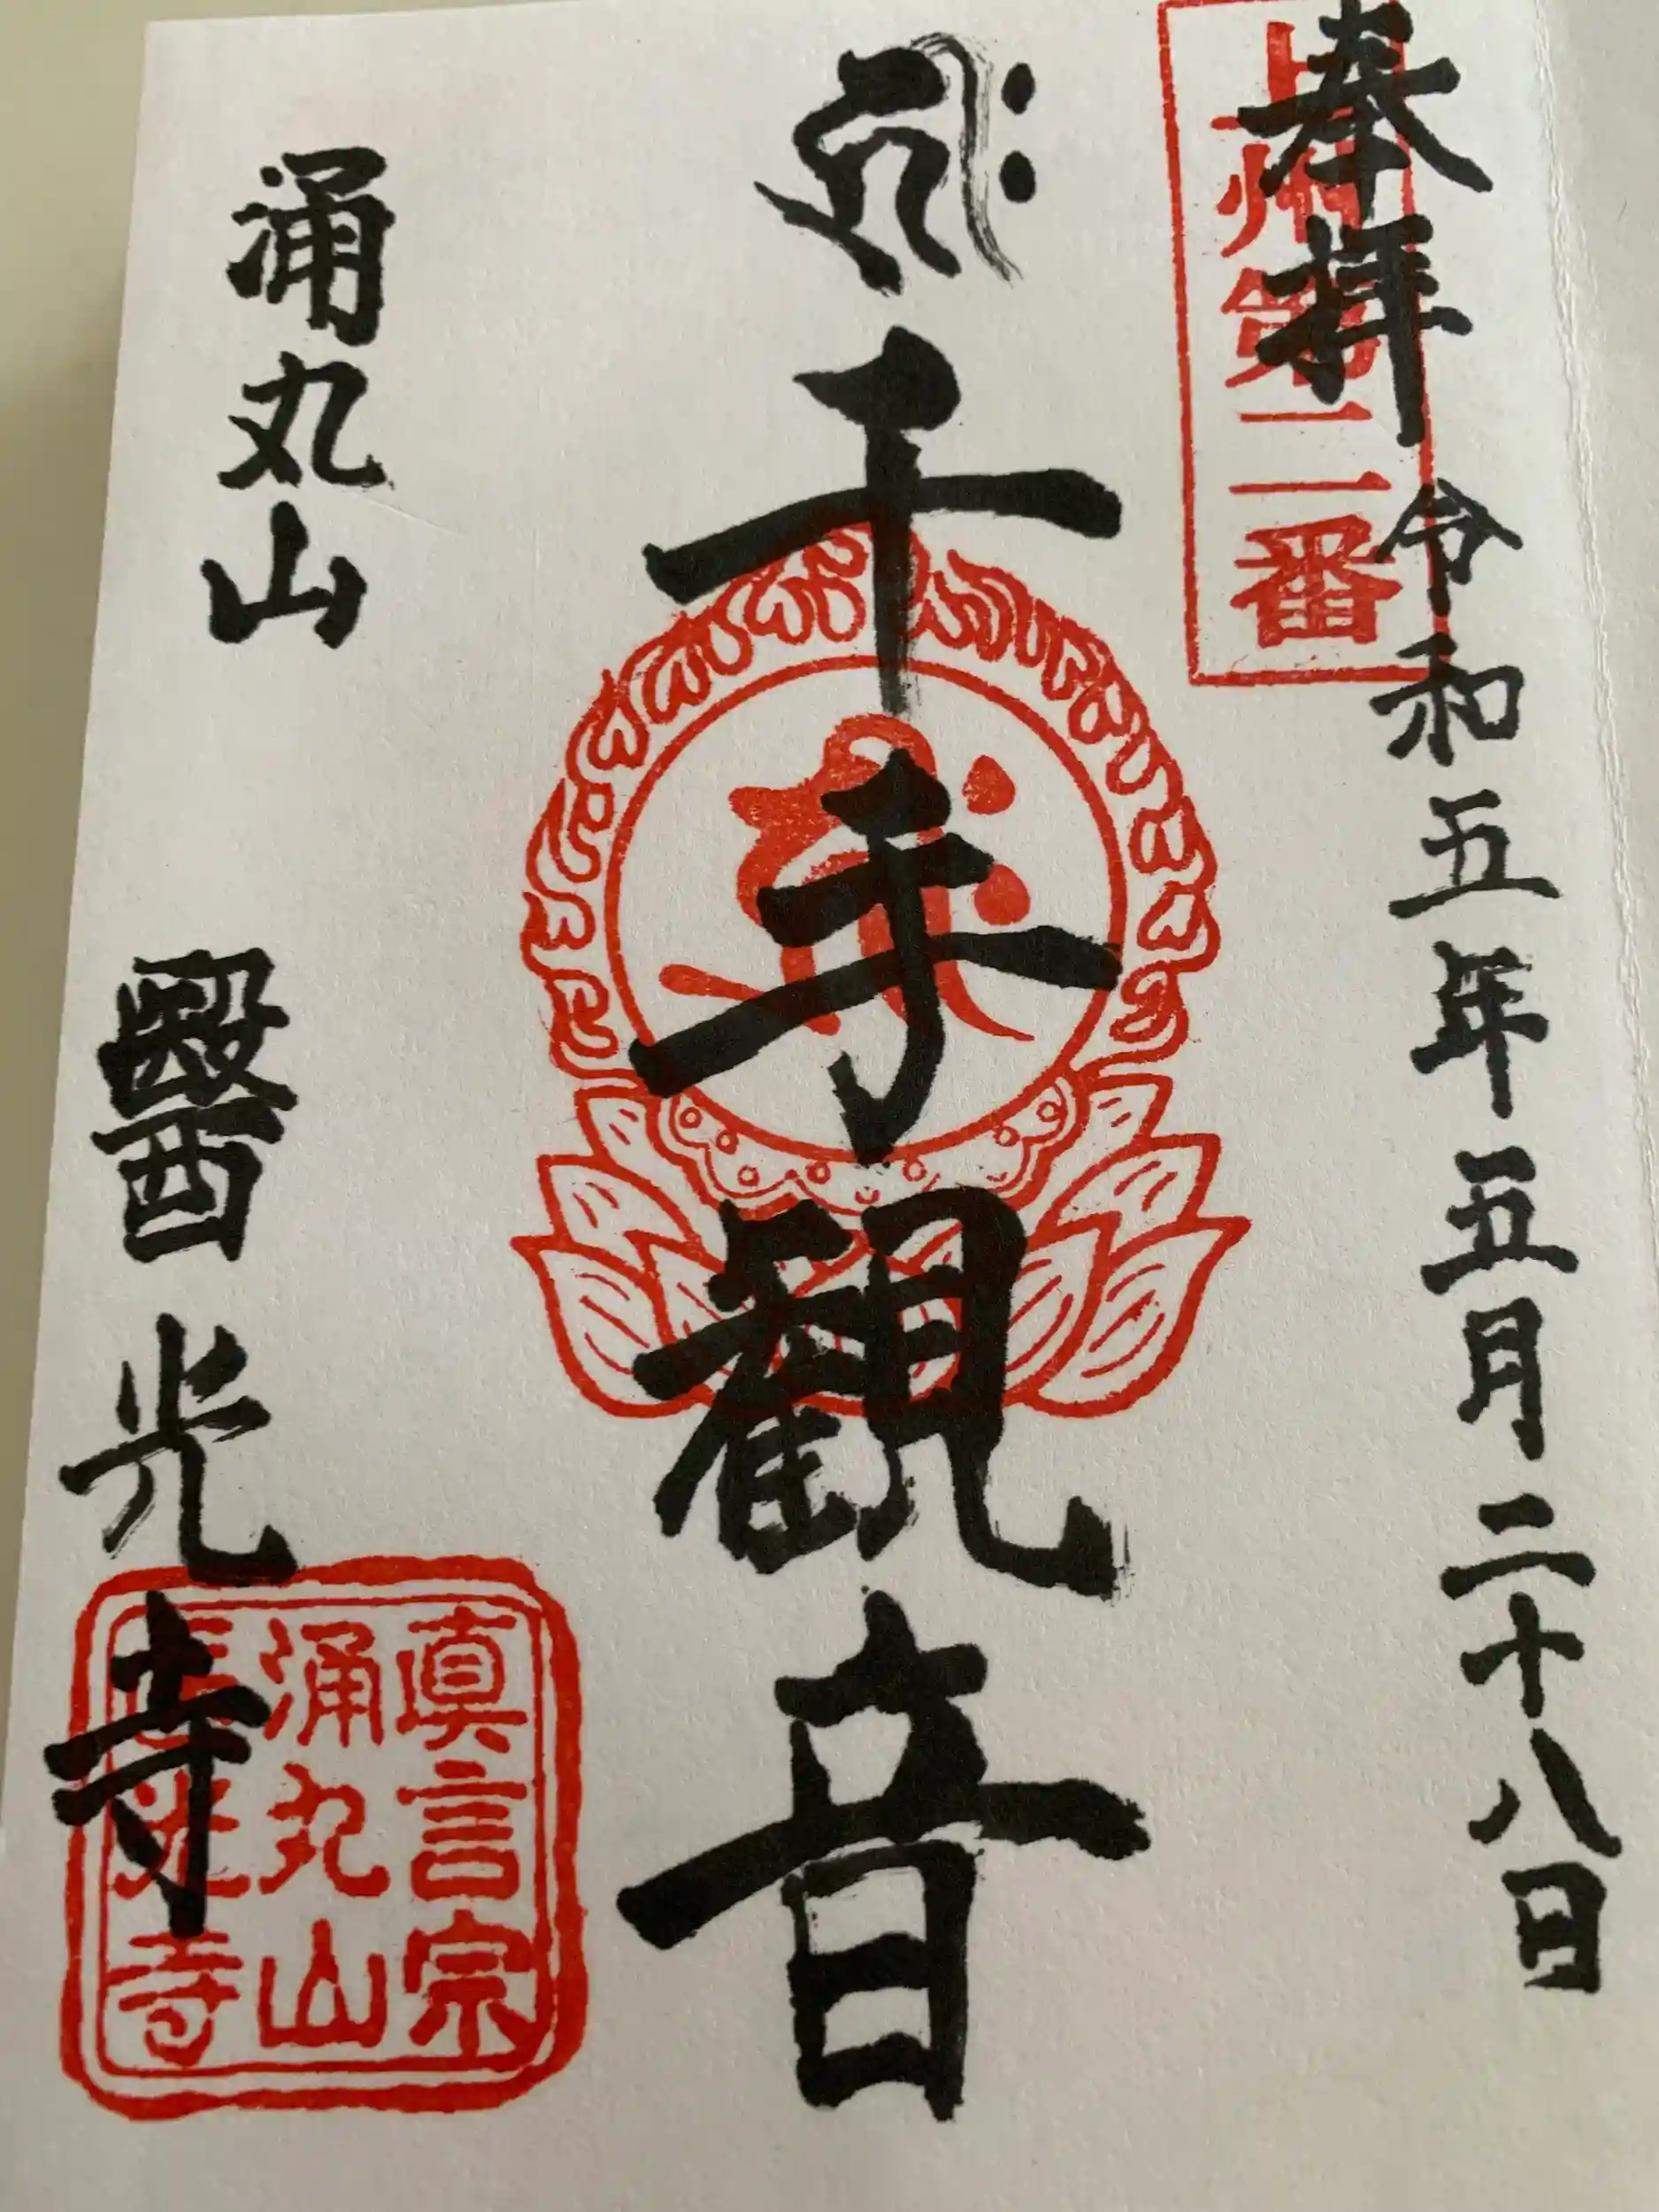 奉拝 令和五年五月二十八日
上州第二番
千手観音
涌丸山 醫光寺
眞言宗
涌丸山
光寺